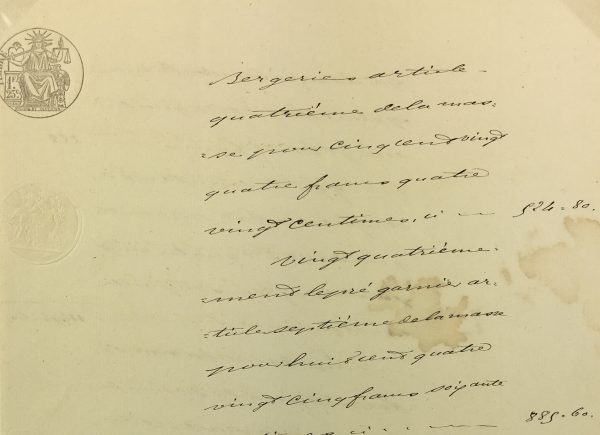 Bergeries article
quatriéme de la mas=
=se pour cinq cent vingt
quatre francs quatre
vingt centimes, ci — 524=80.
Vingt quatriéme=
=ment le pré garnier ar=
=ticle septiéme de la masse
pour huit cent quatre
vingt cinq francs soixante
885=60.